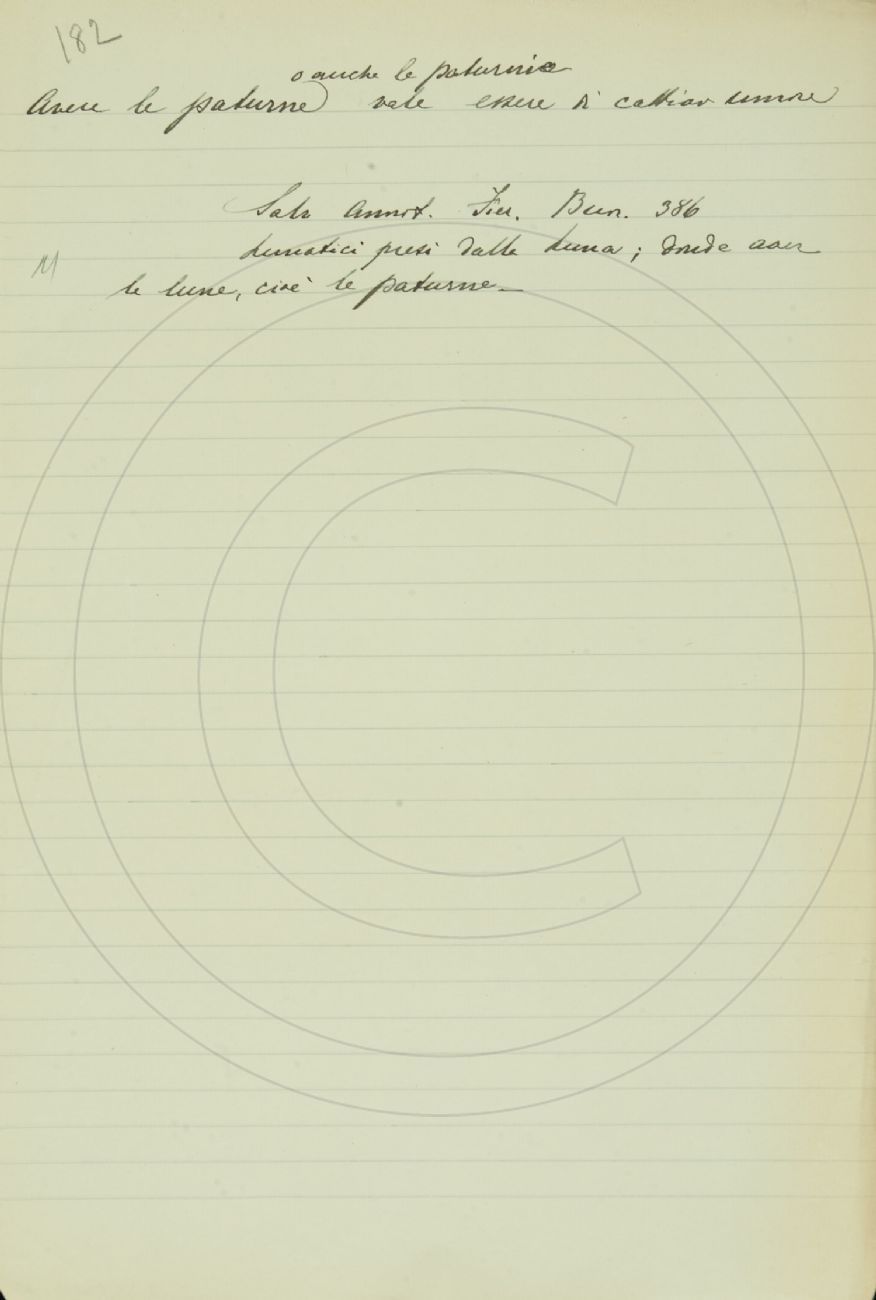 182
o anche le paturnie
Avere le paturne vale essere di cattivo umore
Salv. Annot. Fier. Buon. 386
M
Lunatici presi dalla Luna; donde aver
le lune, cioè le paturne_